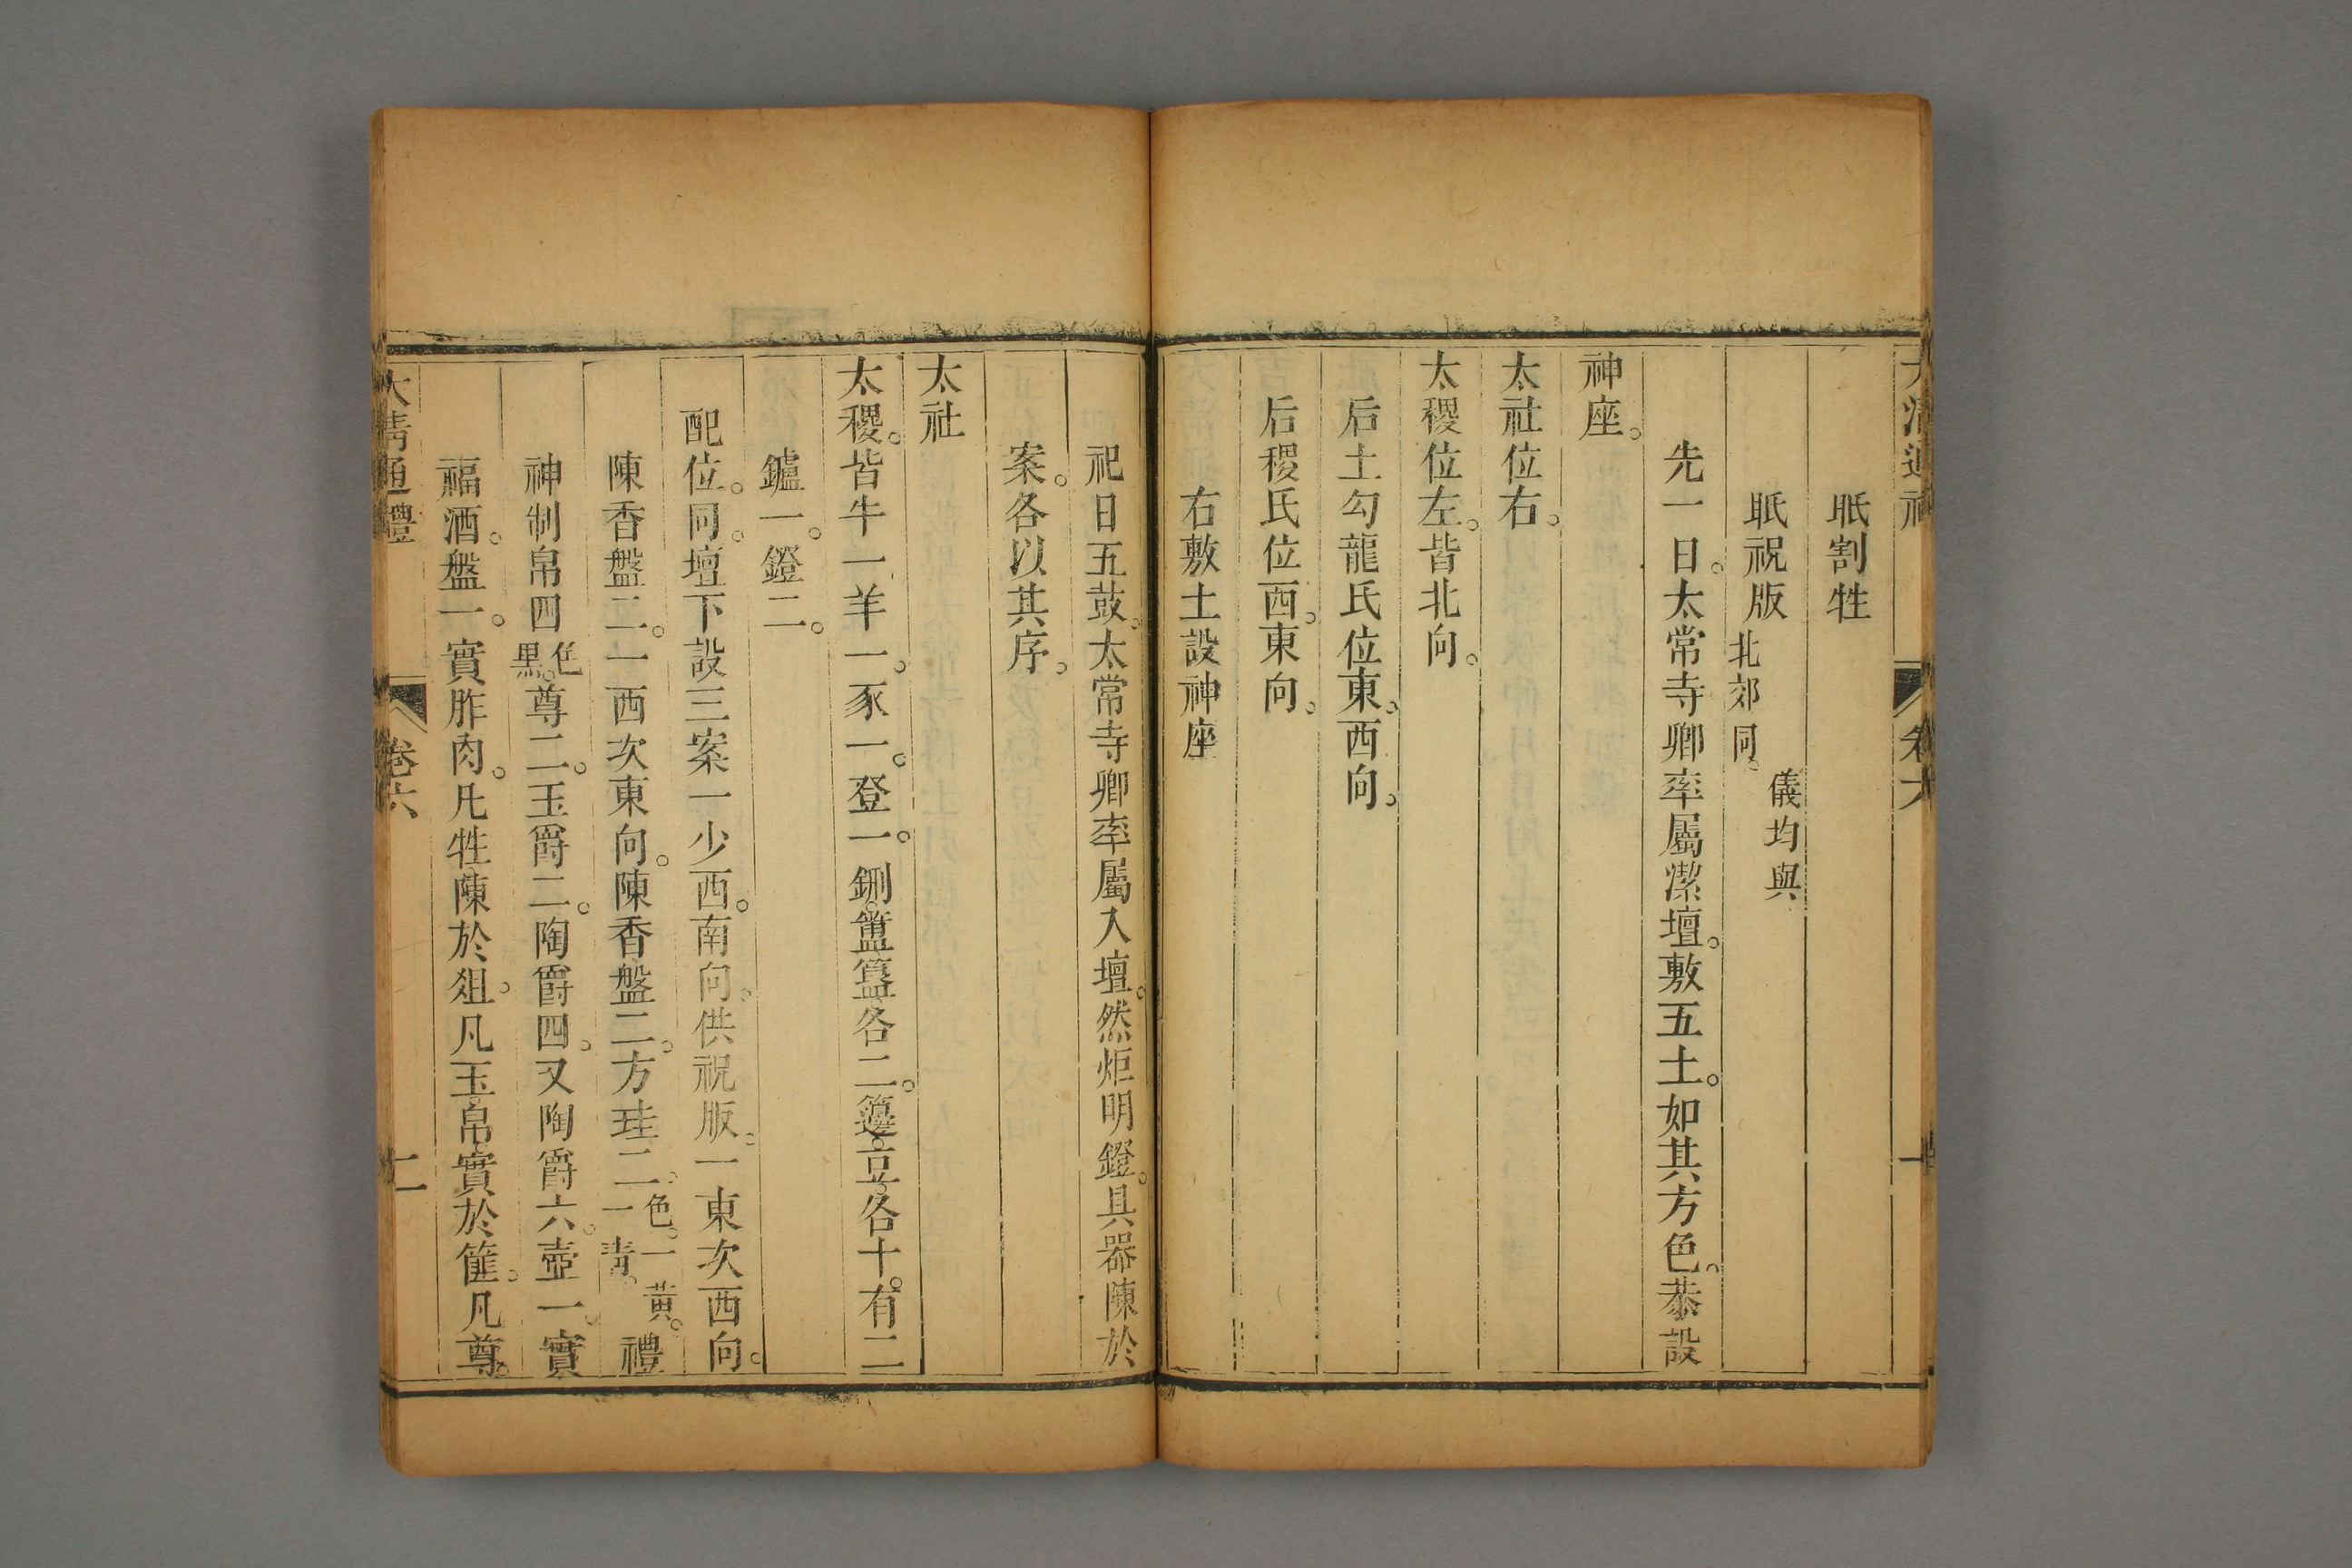 大清通禮 卷六 一
眡割牲
眡祝版儀均與北郊同。
先一日。太常寺卿率屬潔壇。敷五土。如其方色。恭設
神座。
太社位右。
太稷位左。皆北向。
后土勾龍氏位東。西向。
后稷氏位西。東向。
右敷土設神座
祀日五鼓。太常寺卿率屬入壇。然炬明鐙。具器陳於
案。各以其序。
太社
太稷。皆牛一羊一。豕一。登一。鉶。簠簋各二。籩。豆。各十。有二
鑪一。鐙二。
配位。同。壇下設三案一少西。南向。供祝版。一東次西向。
陳香盤二。一西次東向。陳香盤二。方珪二。色。一黃。一青。禮
神制帛四色黑。尊二。玉爵二。陶爵四。又陶爵六。壺一。實
福酒。盤一。實胙肉。凡牲陳於俎。凡玉。帛。實於篚。凡尊。
大清通禮 卷六 二